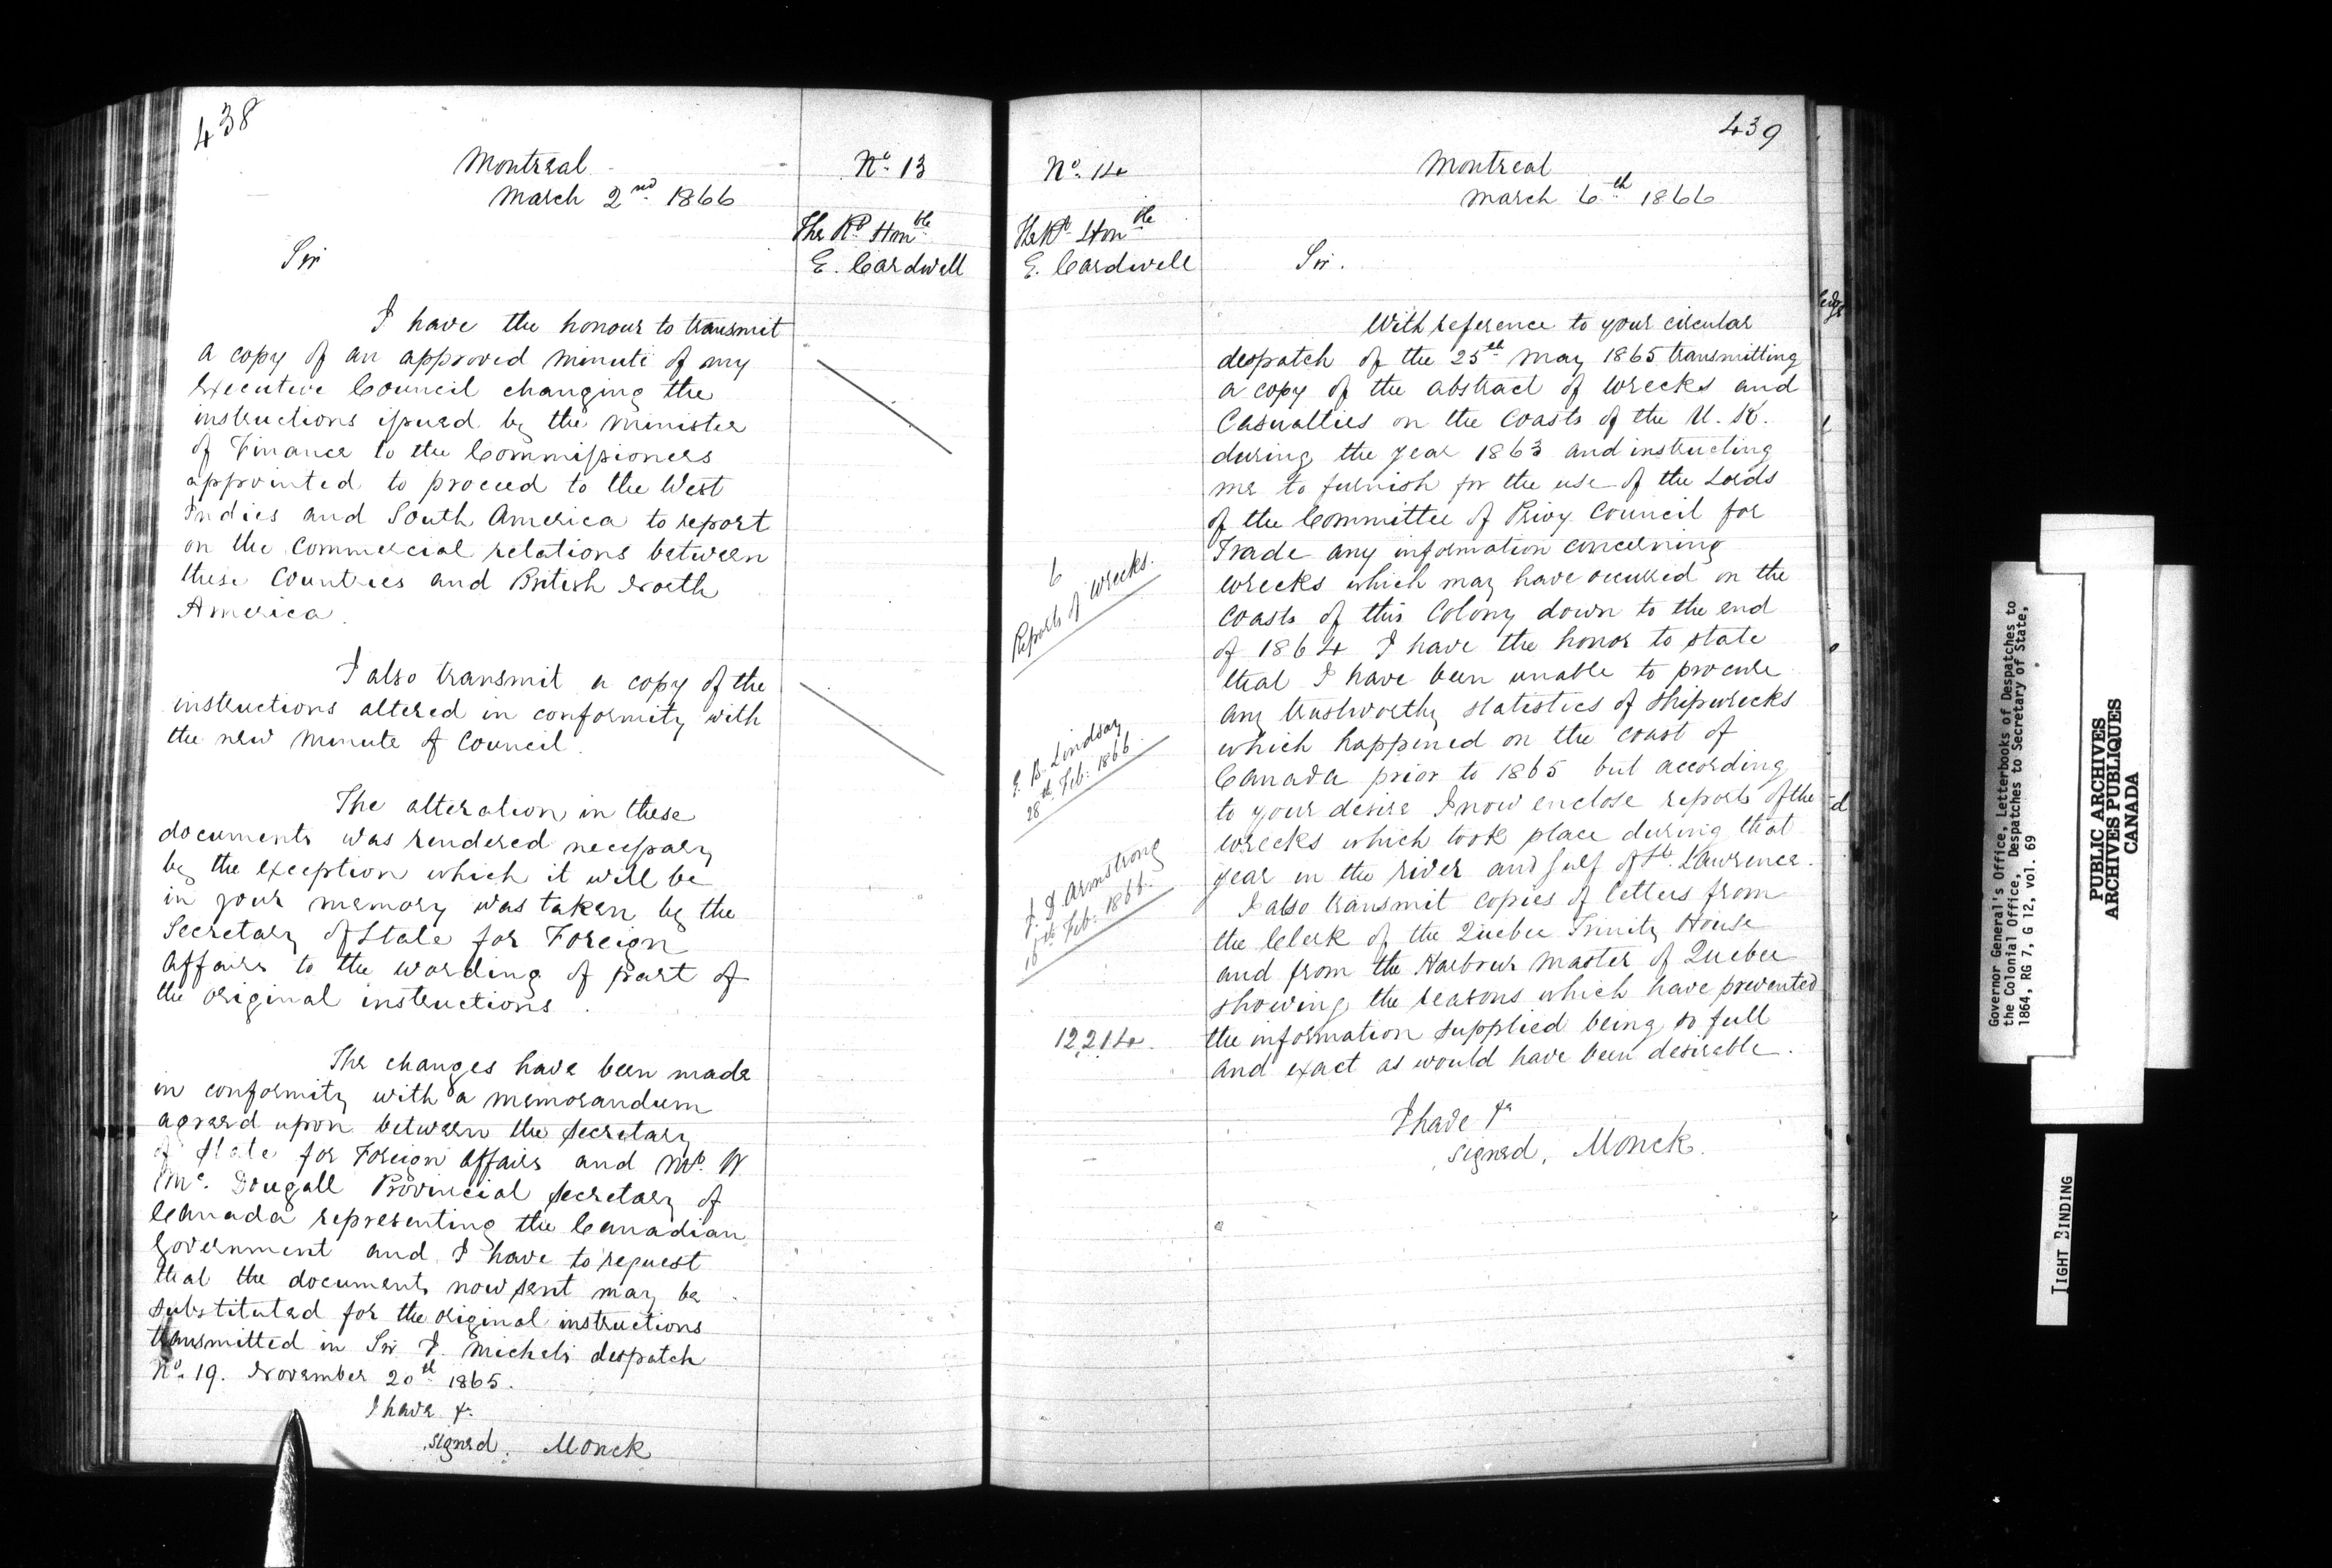 438
Montreal
March 2nd 1866
No. 13
The Rt Honble
E. Cardwell
Sir
I have the honour to transmit
a copy of an approved minute of my
Executive Council changing the
instructions issued by the Minister
of Finance to the Commissioners
appointed to proceed to the West
Indies and South America to report
on the commercial relations between
these Countries and British North
America.
I also transmit a copy of the
instructions altered in conformity with
the new Minute of Council.
The alteration in these
documents was rendered necessary
by the exception which it will be
in your memory was taken by the
Secretary of State for Foreign
Affairs to the wording of part of
the original instructions.
The changes have been made
in conformity with a memorandum
agreed upon between the Secretary
of State for Foreign Affairs and Mr. W
Mc. Dougall Provincial Secretary of
Canada representing the Canadian
Government and I have to request
that the documents now sent may be
substituted for the original instructions
transmitted in Sir J. Michels despatch
No. 19. November 20th 1865.
I have &.
signed. Monck
439
No. 14
The Rt Honble
E. Cardwell
Montreal
March 6th 1866
Sir.
With reference to your circular
despatch of the 25th May 1865 transmitting
a copy of the abstract of wrecks and
Casualties on the Coasts of the U. K.
during the year 1863 and instructing
me to furnish for the use of the Lords
of the Committee of Privy Council for
Trade any information concerning
wrecks which may have occurred on the
coasts of this Colony down to the end
of 1864 I have the honor to state
that I have been unable to procure
any trustworthy statistics of shipwrecks
which happened on the coast of
Canada prior to 1865 but according
to your desire I now enclose reports of the
wrecks which took place during that
year in the river and Gulf of St. Lawrence.
I also transmit copies of letters from
the Clerk of the Quebec Trinity House
and from the Harbour Master of Quebec
showing the reasons which have prevented
the information supplied being so full
and exact as would have been desirable.
I have &a
signed, Monck.
6
Reports of wrecks.
E. B. Lindsay
28th Feb: 1866
J. D Armstrong
Feb: 1866.
12214.
Governor General's Office, Letterbooks of Despatches to
the Colonial Office, Despatches to Secretary of State,
1864, RG 7, G 12, vol. 69
PUBLIC ARCHIVES
ARCHIVES PUBLIQUES
CANADA
TIGHT BINDING